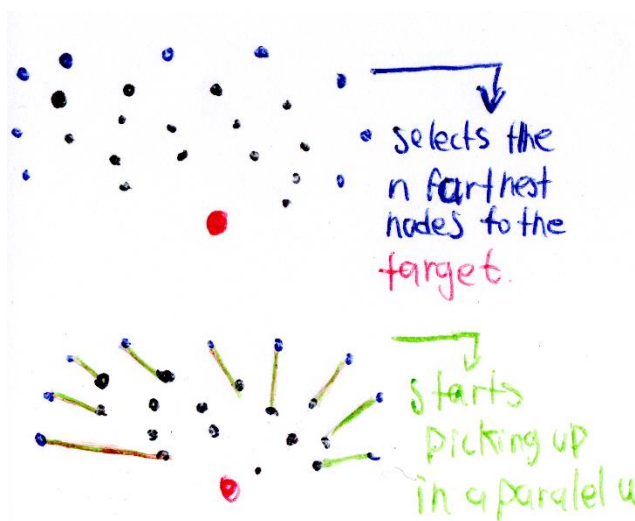 selects the
n farthest
nodes to the
target.
starts
picking up
in a paralel